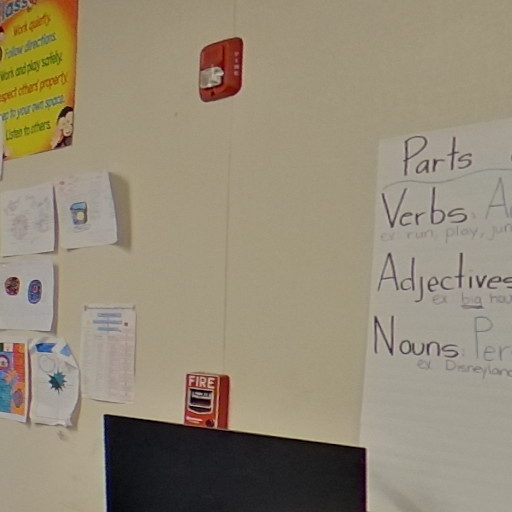 Work quietly.
Follow directions.
Work and play safely.
respect others' property.
to your own space.
Listen to others.
FIRE
FIRE
Parts
Verbs: A
ex run, play, jum
Adjectives
ex big hou
Nouns: Per
ex Disneyland